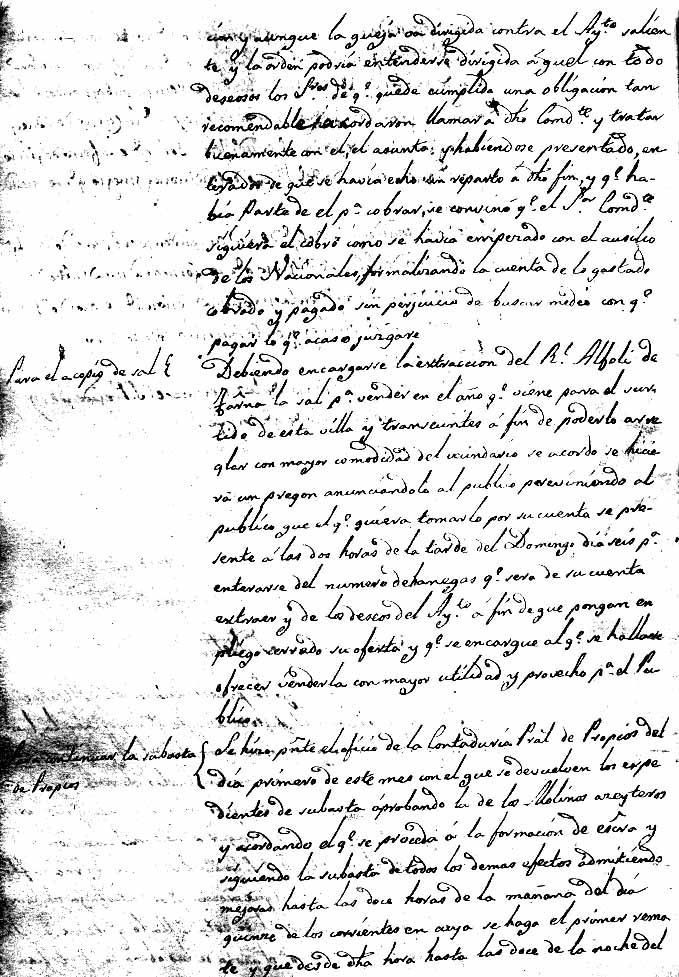 cias y aunque la queja va dirigida contra el Ay.to salien
te y la orden podria entenderse dirigida á quel con todo
deseosos los Sres de q.e quede cumplida una obligacion tan
recomendable acordaron llamar á dho Comd.te y tratar
buenamente con el, el asunto: y habiendose presentado, en
terados de que se havia echo un reparto á dho fin, y q.e ha-
bia parte de el p.a cobrar, se convino q.e el S.or Comd.te
siguiera el cobro como se havia empezado con el ausilio
de los Nacionales, formalizando la cuenta de lo gastado
cobrado y pagado sin perjuicio de buscar medio con q.e
pagar lo q.e acaso juzgare
Para el acopio de sal
Debiendo encargarse la extraccion del R.l Alfoli de
la sal p.a vender en el año q.e viene para el sur
tido de esta villa y transeuntes á fin de poderlo arre
glar con mayor comodidad del vecindario se acordo se hicie
ra un pregon anunciandolo al publico previniendo al
publico que el q.e quiera tomarlo por su cuenta se pre-
sente á las dos horas de la tarde del Domingo dia seis p.a
enterarse del numero de hanegas q.e sera de su cuenta
extraer y de los deseos del Ay.to á fin de que pongan en
pliego cerrado su oferta y q.e se encargue al q.e se hallare
ofrecer venderla con mayor utilidad y provecho p.a el Pu
blico
continuar la subasta
de Propios
Se hizo pnte el oficio de la Contaduria Pral de Propios del
dia primero de este mes con el que se devuelven los expe
dientes de subasta aprobando la de los Molinos azeyteros
y acordando el q.e se proceda á la formacion de escra y
siguiendo la subasta de todos los demas efectos admitiendo
mejoras hasta las doce horas de la mañana del dia
quinze de los corrientes en cuya se haga el primer rema
te y que desde dha hora hasta las doce de la noche del